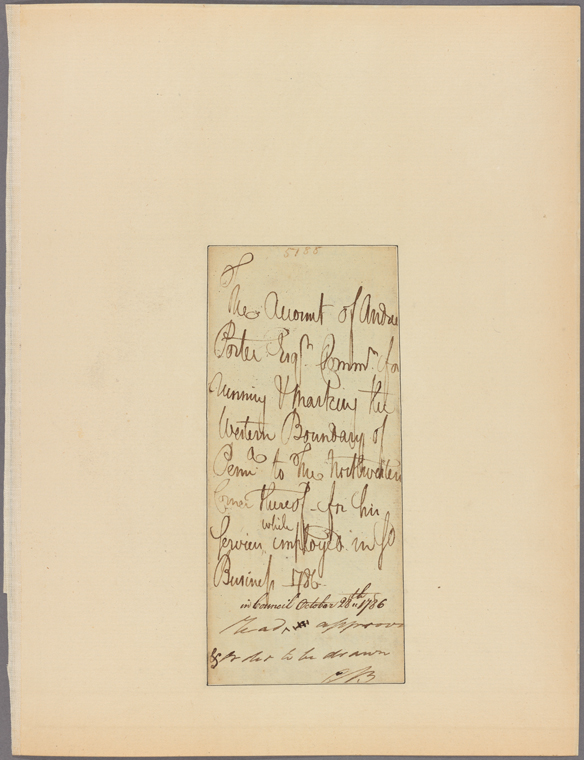 5188
The Account of Andre
Porter Esqr. Commr. for
running & marking the
Western Boundary of
Penna. to The Northwestern
Corner thereof for his
Services while employed in sd
Business 1786
in Council October 28th 1786
Read, approv
& order to be drawn